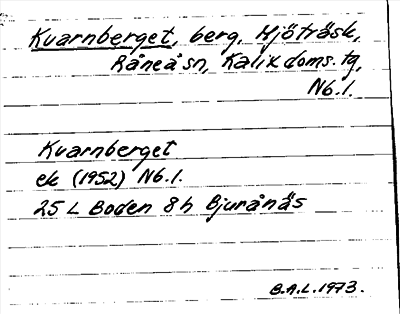 Kvarnberget, berg, Mjöträsk,
Råneå sn, Kalix doms. tg,
Nb.l.
Kvarnberget
ek (1952) Nb.l.
25 L Boden 8h Bjurånäs
B.A.L. 1973.